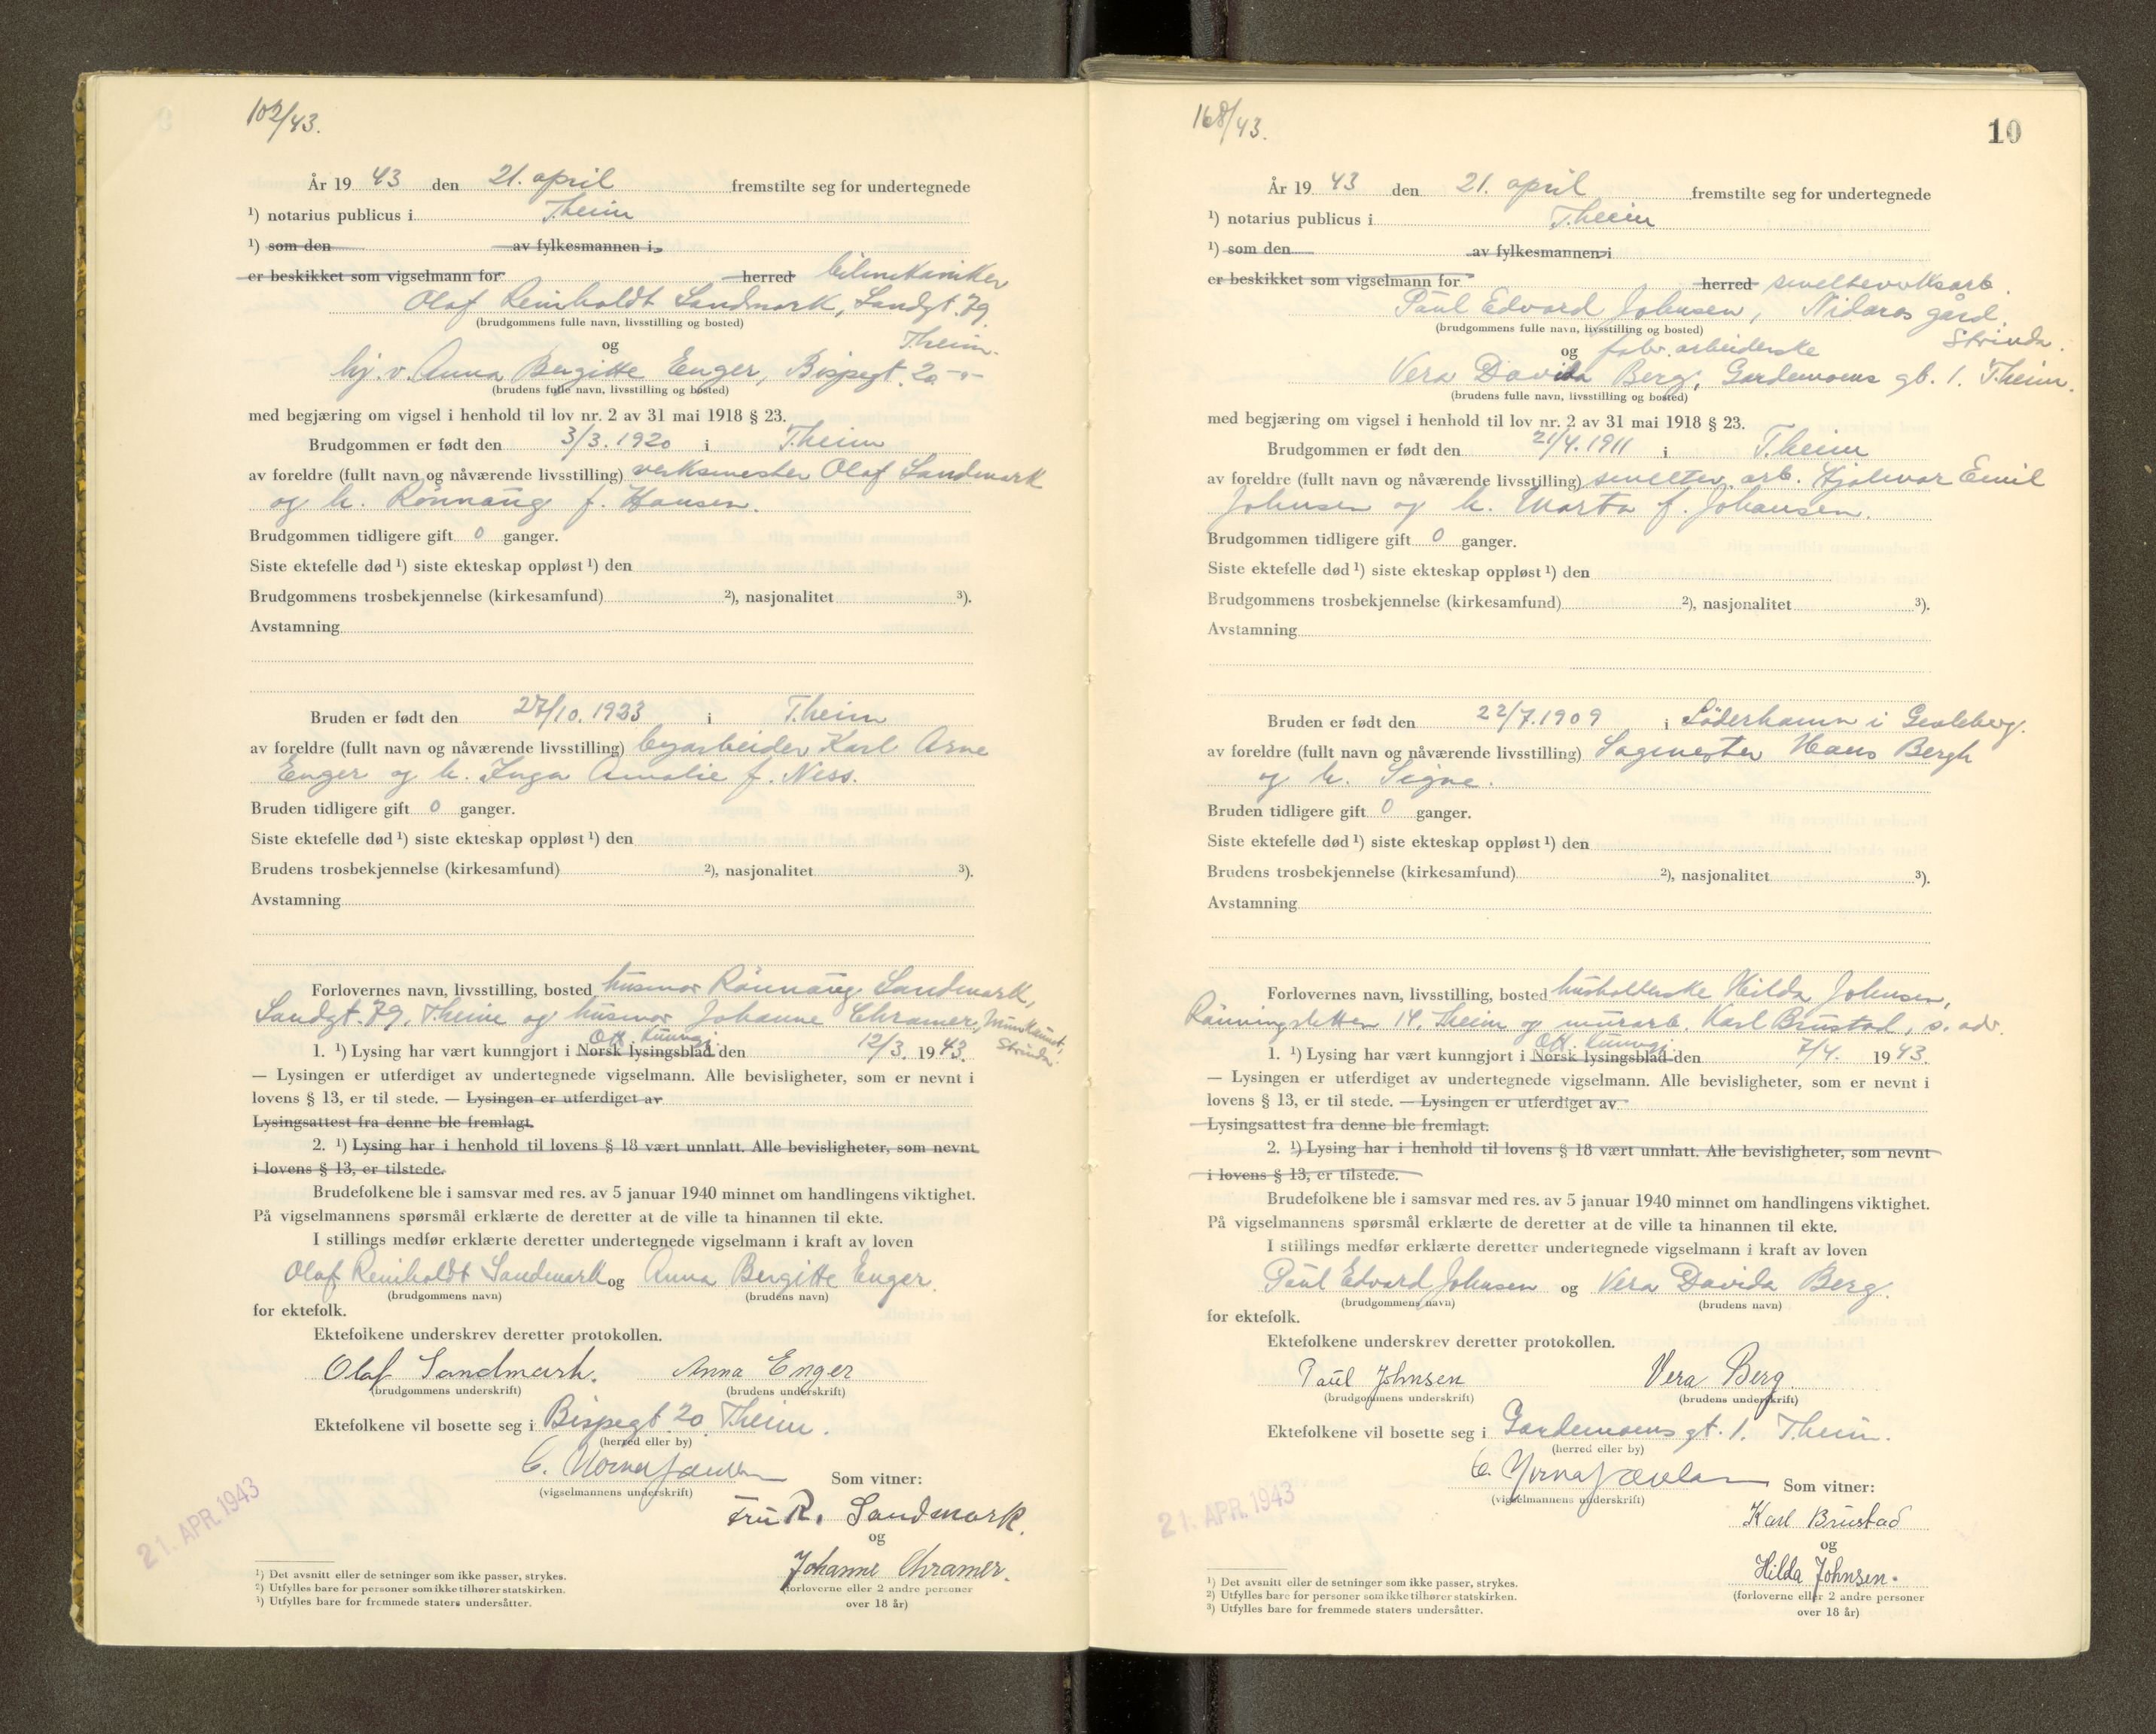 102/43.
År 19 43 den 21. april fremstilte seg for undertegnede
¹) notarius publicus i Theim
¹) som den av fylkesmannen i
er beskikket som vigselmann for herred bilmekaniker
Olaf Reinholdt Sandmark, Sandgt. 79
(brudgommens fulle navn, livsstilling og bosted)
og Theim.
hj. v. Anna Bergitte Enger, Bispegt. 20 -"-
(brudens fulle navn, livsstilling og bosted)
med begjæring om vigsel i henhold til lov nr. 2 av 31 mai 1918 § 23.
Brudgommen er født den 3/3. 1920 i Theim
av foreldre (fullt navn og nåværende livsstilling) verksmester Olaf Sandmark
og h. Rönnaug f. Hansen.
Brudgommen tidligere gift 0 ganger.
Siste ektefelle død ¹) siste ekteskap oppløst ¹) den
Brudgommens trosbekjennelse (kirkesamfund) ²), nasjonalitet ³).
Avstamning
Bruden er født den 27/10. 1923 i Theim
av foreldre (fullt navn og nåværende livsstilling) byarbeider Karl Arne
Enger og h. Inga Amalie f. Ness.
Bruden tidligere gift 0 ganger.
Siste ektefelle død ¹) siste ekteskap oppløst ¹) den
Brudens trosbekjennelse (kirkesamfund) ²), nasjonalitet ³).
Avstamning
Forlovernes navn, livsstilling, bosted husmor Rönnaug Sandmark,
Sandgt. 79, Theim og husmor Johanne Chramer,
Strinda.
Off. kunngj.
1. ¹) Lysing har vært kunngjort i Norsk lysingsblad den 12/3. 19 43.
— Lysingen er utferdiget av undertegnede vigselmann. Alle bevisligheter, som er nevnt i
lovens § 13, er til stede. — Lysingen er utferdiget av
Lysingsattest fra denne ble fremlagt.
2. ¹) Lysing har i henhold til lovens § 18 vært unnlatt. Alle bevisligheter, som nevnt
i lovens § 13, er tilstede.
Brudefolkene ble i samsvar med res. av 5 januar 1940 minnet om handlingens viktighet.
På vigselmannens spørsmål erklærte de deretter at de ville ta hinannen til ekte.
I stillings medfør erklærte deretter undertegnede vigselmann i kraft av loven
Olaf Reinholdt Sandmark og Anna Bergitte Enger.
(brudgommens navn) (brudens navn)
for ektefolk.
Ektefolkene underskrev deretter protokollen.
Olaf Sandmark. Anna Enger
(brudgommens underskrift) (brudens underskrift)
Ektefolkene vil bosette seg i Bispegt. 20 Theim.
(herred eller by)
C.
(vigselmannens underskrift) Som vitner:
Fru R. Sandmark.
og
Johanne Chramer.
(forloverne eller 2 andre personer
over 18 år)
21. APR. 1943
¹) Det avsnitt eller de setninger som ikke passer, strykes.
²) Utfylles bare for personer som ikke tilhører statskirken.
³) Utfylles bare for fremmede staters undersåtter.
168/43.
10
År 19 43 den 21. april fremstilte seg for undertegnede
¹) notarius publicus i Theim
¹) som den av fylkesmannen i
er beskikket som vigselmann for herred smelteverksarb.
Paul Edvard Johnsen, Nidaros gård
(brudgommens fulle navn, livsstilling og bosted) Strinda.
og fabr. arbeiderske
Vera Davida Berg, Gardemoens gt. 1. Theim.
(brudens fulle navn, livsstilling og bosted)
med begjæring om vigsel i henhold til lov nr. 2 av 31 mai 1918 § 23.
Brudgommen er født den 21/4. 1911 i Theim
av foreldre (fullt navn og nåværende livsstilling) smeltev. arb. Hjalmar Emil
Johnsen og h. Marta f. Johansen.
Brudgommen tidligere gift 0 ganger.
Siste ektefelle død ¹) siste ekteskap oppløst ¹) den
Brudgommens trosbekjennelse (kirkesamfund) ²), nasjonalitet ³).
Avstamning
Bruden er født den 22/7. 1909 i Söderhamn i
av foreldre (fullt navn og nåværende livsstilling) Sagmester Hans Bergh
og h. Signe.
Bruden tidligere gift 0 ganger.
Siste ektefelle død ¹) siste ekteskap oppløst ¹) den
Brudens trosbekjennelse (kirkesamfund) ²), nasjonalitet ³).
Avstamning
Forlovernes navn, livsstilling, bosted husholderske Hilda Johnsen,
Rönningsletten 14, Theim og murarb. Karl Brustad, s. adr.
Off. kunngj.
1. ¹) Lysing har vært kunngjort i Norsk lysingsblad den 7/4. 19 43.
— Lysingen er utferdiget av undertegnede vigselmann. Alle bevisligheter, som er nevnt i
lovens § 13, er til stede. — Lysingen er utferdiget av
Lysingsattest fra denne ble fremlagt.
2. ¹) Lysing har i henhold til lovens § 18 vært unnlatt. Alle bevisligheter, som nevnt
i lovens § 13, er tilstede.
Brudefolkene ble i samsvar med res. av 5 januar 1940 minnet om handlingens viktighet.
På vigselmannens spørsmål erklærte de deretter at de ville ta hinannen til ekte.
I stillings medfør erklærte deretter undertegnede vigselmann i kraft av loven
Paul Edvard Johnsen og Vera Davida Berg.
(brudgommens navn) (brudens navn)
for ektefolk.
Ektefolkene underskrev deretter protokollen.
Paul Johnsen Vera Berg
(brudgommens underskrift) (brudens underskrift)
Ektefolkene vil bosette seg i Gardemoens gt. 1. Theim.
(herred eller by)
C.
(vigselmannens underskrift) Som vitner:
Karl Brustad
og
Hilda Johnsen.
(forloverne eller 2 andre personer
over 18 år)
21. APR. 1943
¹) Det avsnitt eller de setninger som ikke passer, strykes.
²) Utfylles bare for personer som ikke tilhører statskirken.
³) Utfylles bare for fremmede staters undersåtter.